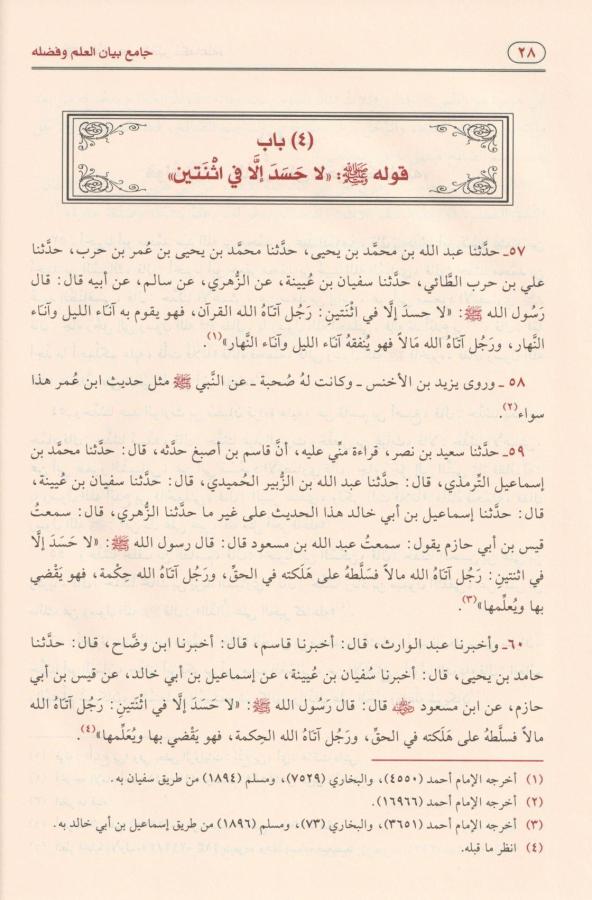 ٢٨
جامع بيان العلم وفضله
(٤) باب
قوله ﷺ: «لا حَسَدَ إلَّا في اثْنَتين»
٥٧ـ حدَّثنا عبد الله بن محمَّد بن يحيى، حدَّثنا محمَّد بن يحيى بن عُمر بن حرب، حدَّثنا
علي بن حرب الطَّائي، حدَّثنا سفيان بن عُيينة، عن الزُّهري، عن سالم، عن أبيه قال: قال
رَسُول الله ﷺ: «لا حسدَ إلَّا في اثْنَتينِ: رَجُل آتاهُ الله القرآن، فهو يقوم به آناء الليل وآناء
النَّهار، ورَجُل آتاهُ الله مَالاً فهو يُنفقهُ آناء الليل وآناء النَّهار»(١).
٥٨ ـ وروى يزيد بن الأخنس ـ وكانت لهُ صُحبة ـ عن النَّبي ﷺ مثل حديث ابن عُمر هذا
سواء(٢).
٥٩ـ حدَّثنا سعيد بن نصر، قراءة منِّي عليه، أنَّ قاسم بن أصبغ حدَّثه، قال: حدَّثنا محمَّد بن
إسماعيل التِّرمذي، قال: حدَّثنا عبد الله بن الزُّبير الحُميدي، قال: حدَّثنا سفيان بن عُيينة،
قال: حدَّثنا إسماعيل بن أبي خالد هذا الحديث على غير ما حدَّثنا الزُّهري، قال: سمعتُ
قيس بن أبي حازم يقول: سمعتُ عبد الله بن مسعود قال: قال رسول الله ﷺ: «لا حَسَدَ إلَّا
في اثنتين: رَجُل آتاهُ الله مالاً فسَلَّطهُ على هَلَكته في الحقِّ، ورَجُل آتاهُ الله حِكْمة، فهو يَقْضي
بها ويُعلِّمها»(٣).
٦٠ـ وأخبرنا عبد الوارث، قال: أخبرنا قاسم، قال: أخبرنا ابن وضَّاح، قال: حدَّثنا
حامد بن يحيى، قال: أخبرنا سُفيان بن عُيينة، عن إسماعيل بن أبي خالد، عن قيس بن أبي
حازم، عن ابن مسعود ﷺ قال: قال رَسُول الله ﷺ: «لا حَسَدَ إلَّا في اثْنَتينِ: رَجُل آتاهُ الله
مالاً فسلَّطهُ على هَلَكته في الحقِّ، ورَجُل آتاهُ الله الحِكمة، فهو يَقْضي بها ويُعلِّمها»(٤).
(١) أخرجه الإمام أحمد (٤٥٥٠)، والبخاري (٧٥٢٩)، ومسلم (١٨٩٤) من طريق سفيان به.
(٢) أخرجه الإمام أحمد (١٦٩٦٦).
(٣) أخرجه الإمام أحمد (٣٦٥١)، والبخاري (٧٣)، ومسلم (١٨٩٦) من طريق إسماعيل بن أبي خالد به.
(٤) انظر ما قبله.